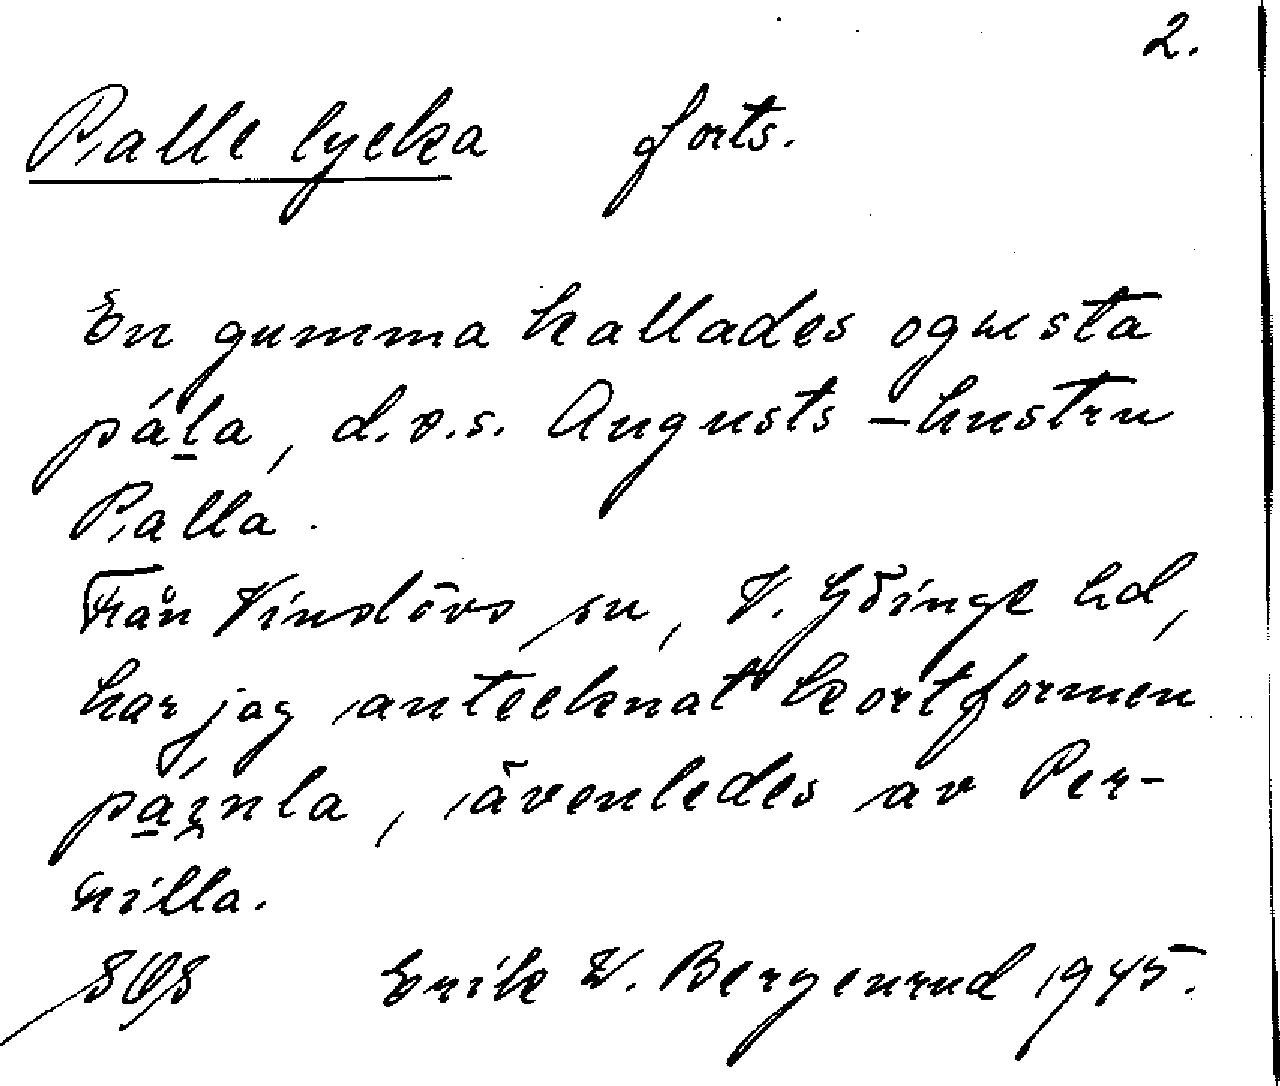 2.
Palle lycka forts.
En gumma kallades ogusta
pál̲a, d.v.s. Augusts-hustru
Palla.
Från Vinslövs sn, V. Göinge hd,
har jag antecknat kortformen
pa̲rnla, ävenledes av Per-
nilla.
Erik W. Bergenrud 1945.